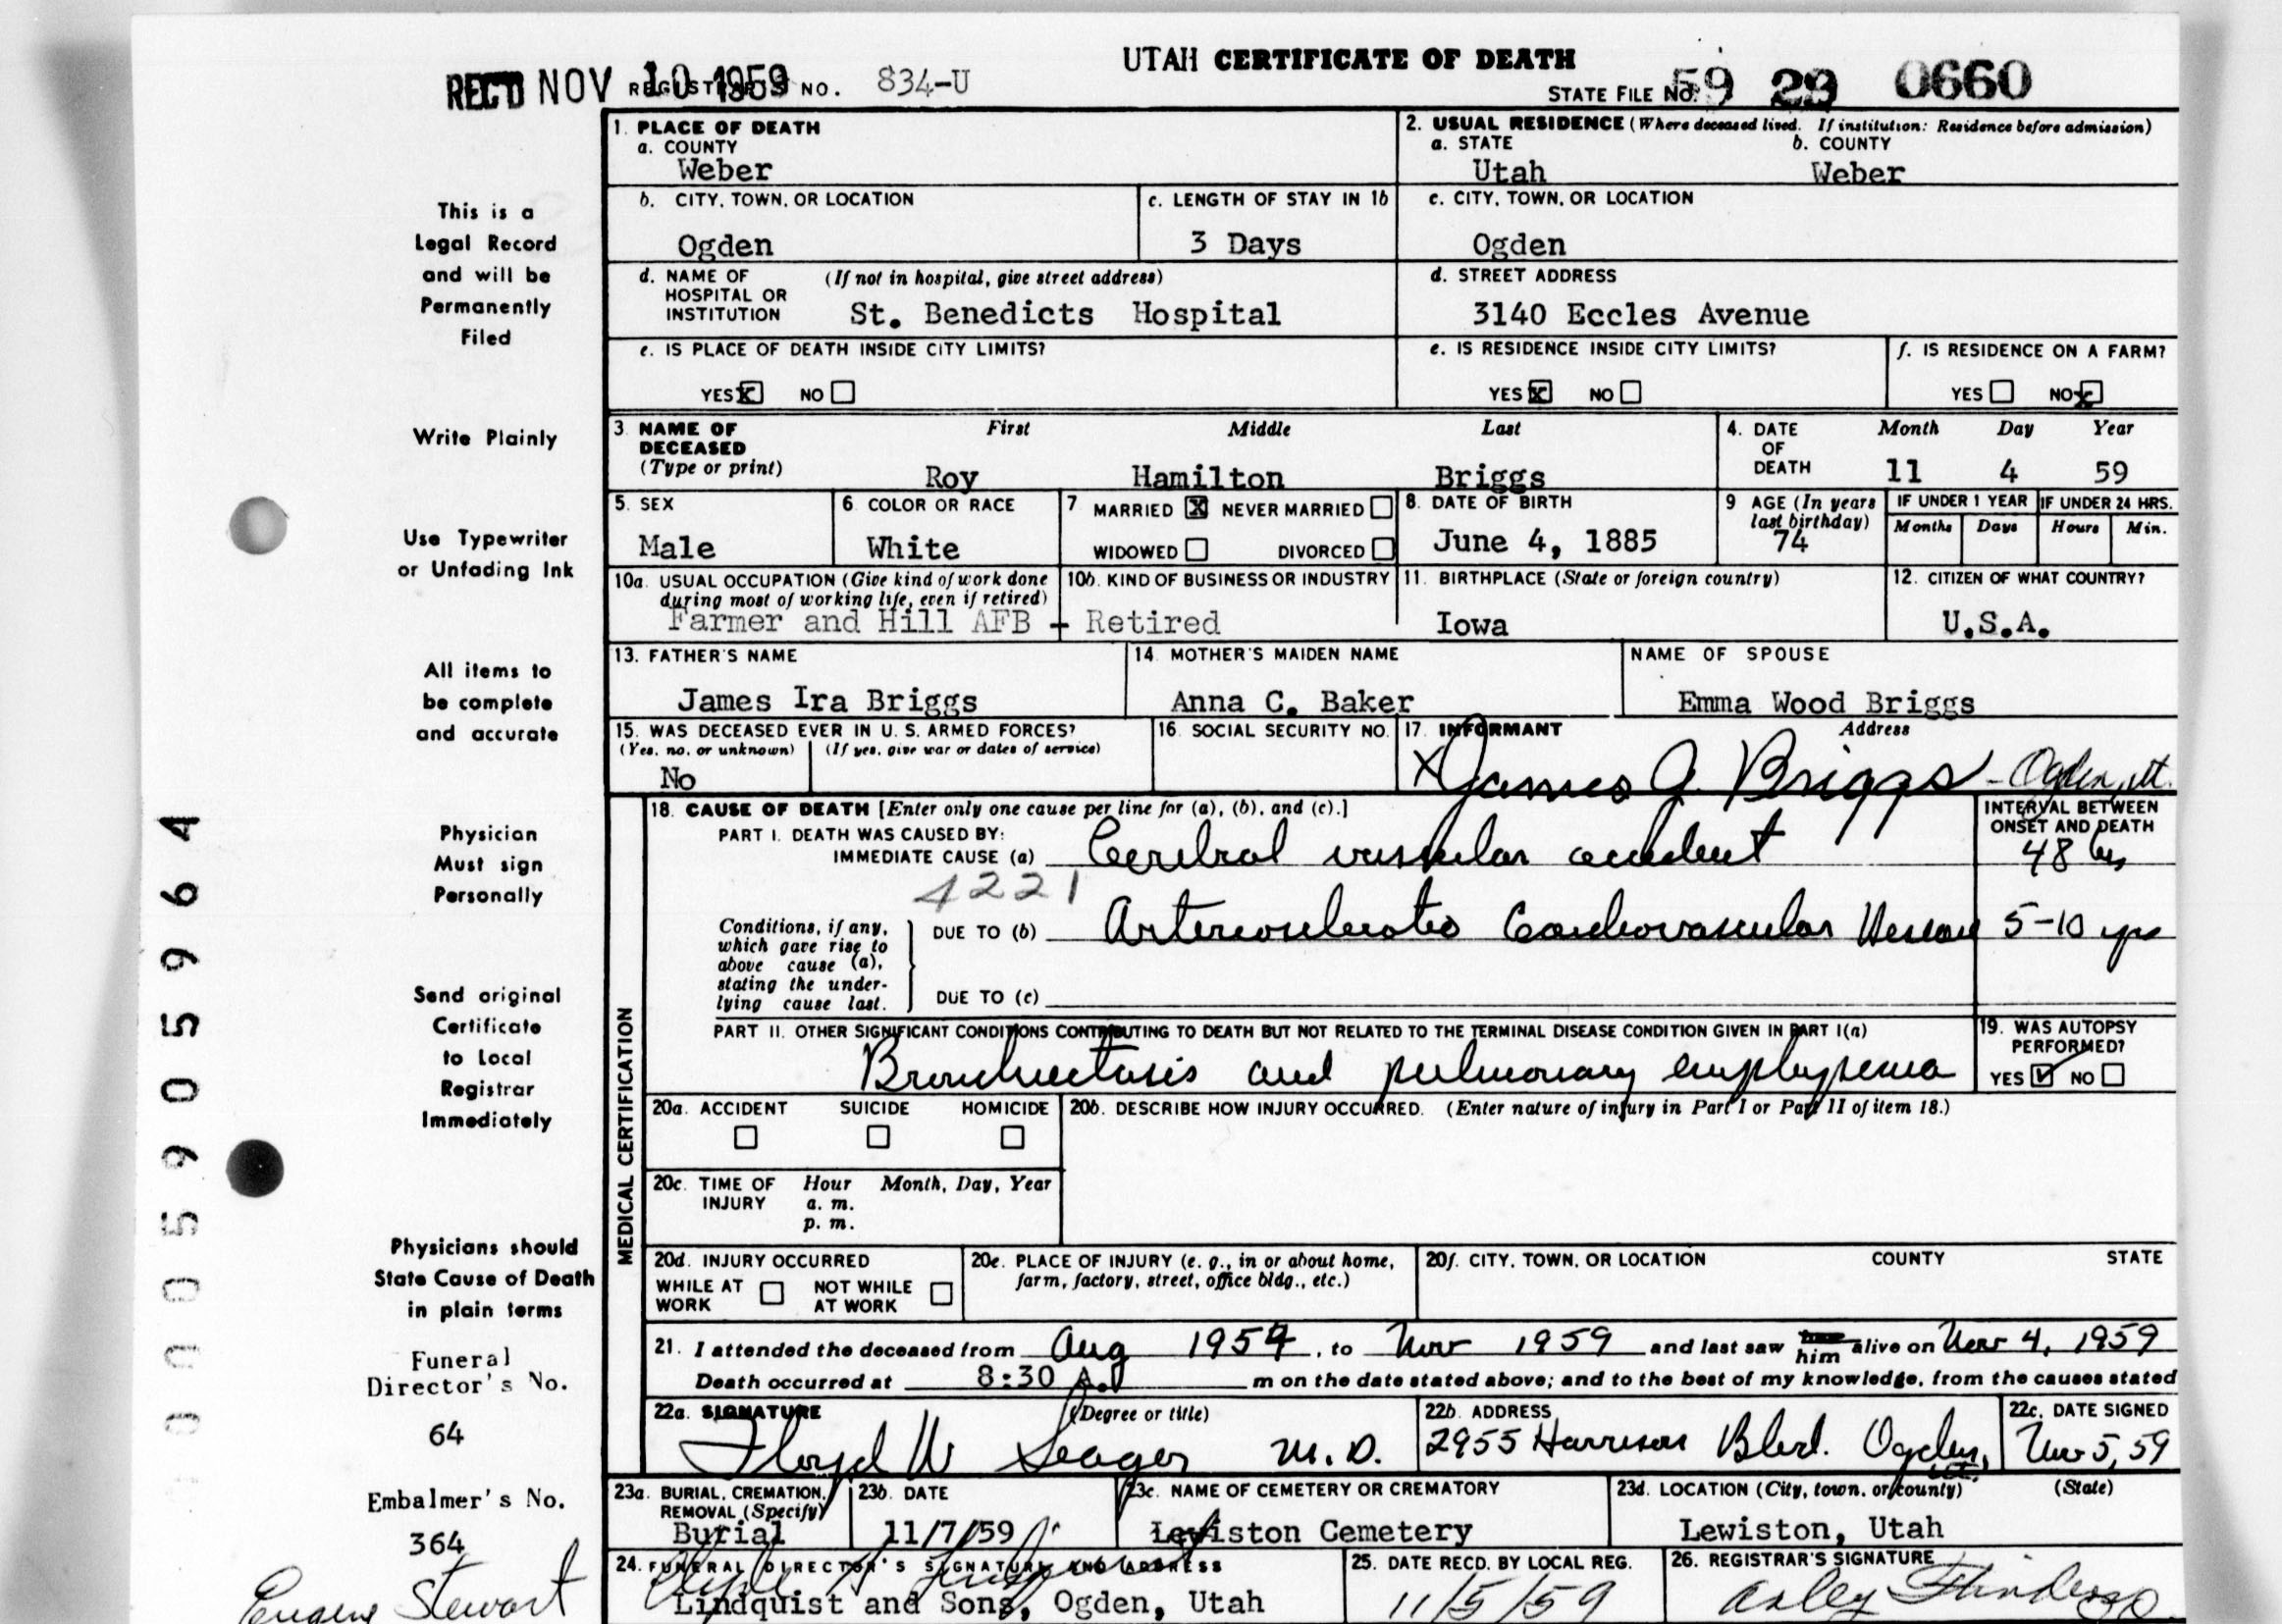 UTAH CERTIFICATE OF DEATH
REC'D NOV 10 1959 REGISTRAR'S NO. 834-U
STATE FILE NO. 59 29 0660
1. PLACE OF DEATH
a. COUNTY
Weber
2. USUAL RESIDENCE (Where deceased lived. If institution: Residence before admission)
a. STATE b. COUNTY
Utah Weber
b. CITY, TOWN, OR LOCATION
Ogden
c. LENGTH OF STAY IN 1b
3 Days
c. CITY, TOWN, OR LOCATION
Ogden
d. NAME OF HOSPITAL OR INSTITUTION (If not in hospital, give street address)
St. Benedicts Hospital
d. STREET ADDRESS
3140 Eccles Avenue
e. IS PLACE OF DEATH INSIDE CITY LIMITS?
YES X NO
e. IS RESIDENCE INSIDE CITY LIMITS?
YES X NO
f. IS RESIDENCE ON A FARM?
YES NO X
3. NAME OF DECEASED (Type or print)
First Middle Last
Roy Hamilton Briggs
4. DATE OF DEATH Month Day Year
11 4 59
5. SEX
Male
6. COLOR OR RACE
White
7 MARRIED X NEVER MARRIED
WIDOWED DIVORCED
8. DATE OF BIRTH
June 4, 1885
9 AGE (In years last birthday)
74
IF UNDER 1 YEAR
Months Days
IF UNDER 24 HRS.
Hours Min.
10a. USUAL OCCUPATION (Give kind of work done during most of working life, even if retired)
Farmer and Hill AFB - Retired
10b. KIND OF BUSINESS OR INDUSTRY
11. BIRTHPLACE (State or foreign country)
Iowa
12. CITIZEN OF WHAT COUNTRY?
U.S.A.
13. FATHER'S NAME
James Ira Briggs
14. MOTHER'S MAIDEN NAME
Anna C. Baker
NAME OF SPOUSE
Emma Wood Briggs
15. WAS DECEASED EVER IN U. S. ARMED FORCES?
(Yes, no, or unknown) (If yes, give war or dates of service)
No
16. SOCIAL SECURITY NO.
17. INFORMANT Address
X James J. Briggs - Ogden, Ut.
MEDICAL CERTIFICATION
18. CAUSE OF DEATH [Enter only one cause per line for (a), (b), and (c).]
INTERVAL BETWEEN ONSET AND DEATH
PART I. DEATH WAS CAUSED BY:
IMMEDIATE CAUSE (a) Cerebral vascular accident 48 hrs
4221
Conditions, if any, which gave rise to above cause (a), stating the underlying cause last.
DUE TO (b) Arteriosclerotic Cardiovascular Disease 5-10 yrs
DUE TO (c)
PART II. OTHER SIGNIFICANT CONDITIONS CONTRIBUTING TO DEATH BUT NOT RELATED TO THE TERMINAL DISEASE CONDITION GIVEN IN PART I(a)
Bronchiectasis and pulmonary emphysema
19. WAS AUTOPSY PERFORMED?
YES ✓ NO
20a. ACCIDENT SUICIDE HOMICIDE
20b. DESCRIBE HOW INJURY OCCURRED. (Enter nature of injury in Part I or Part II of item 18.)
20c. TIME OF INJURY Hour Month, Day, Year
a. m.
p. m.
20d. INJURY OCCURRED
WHILE AT WORK NOT WHILE AT WORK
20e. PLACE OF INJURY (e. g., in or about home, farm, factory, street, office bldg., etc.)
20f. CITY, TOWN, OR LOCATION COUNTY STATE
21. I attended the deceased from Aug 1954, to Nov 1959 and last saw him alive on Nov 4, 1959
Death occurred at 8:30 A. m on the date stated above; and to the best of my knowledge, from the causes stated
22a. SIGNATURE (Degree or title)
Floyd W Seager M.D.
22b. ADDRESS
2955 Harrison Blvd. Ogden, Ut.
22c. DATE SIGNED
Nov 5, 59
23a. BURIAL, CREMATION, REMOVAL (Specify)
Burial
23b. DATE
11/7/59
23c. NAME OF CEMETERY OR CREMATORY
Lewiston Cemetery
23d. LOCATION (City, town, or county) (State)
Lewiston, Utah
24. FUNERAL DIRECTOR'S SIGNATURE AND ADDRESS
Lindquist and Sons, Ogden, Utah
25. DATE RECD. BY LOCAL REG.
11/5/59
26. REGISTRAR'S SIGNATURE
This is a
Legal Record
and will be
Permanently
Filed
Write Plainly
Use Typewriter
or Unfading Ink
All items to
be complete
and accurate
Physician
Must sign
Personally
Send original
Certificate
to Local
Registrar
Immediately
Physicians should
State Cause of Death
in plain terms
Funeral
Director's No.
64
Embalmer's No.
364
Eugene Stewart
0005905964